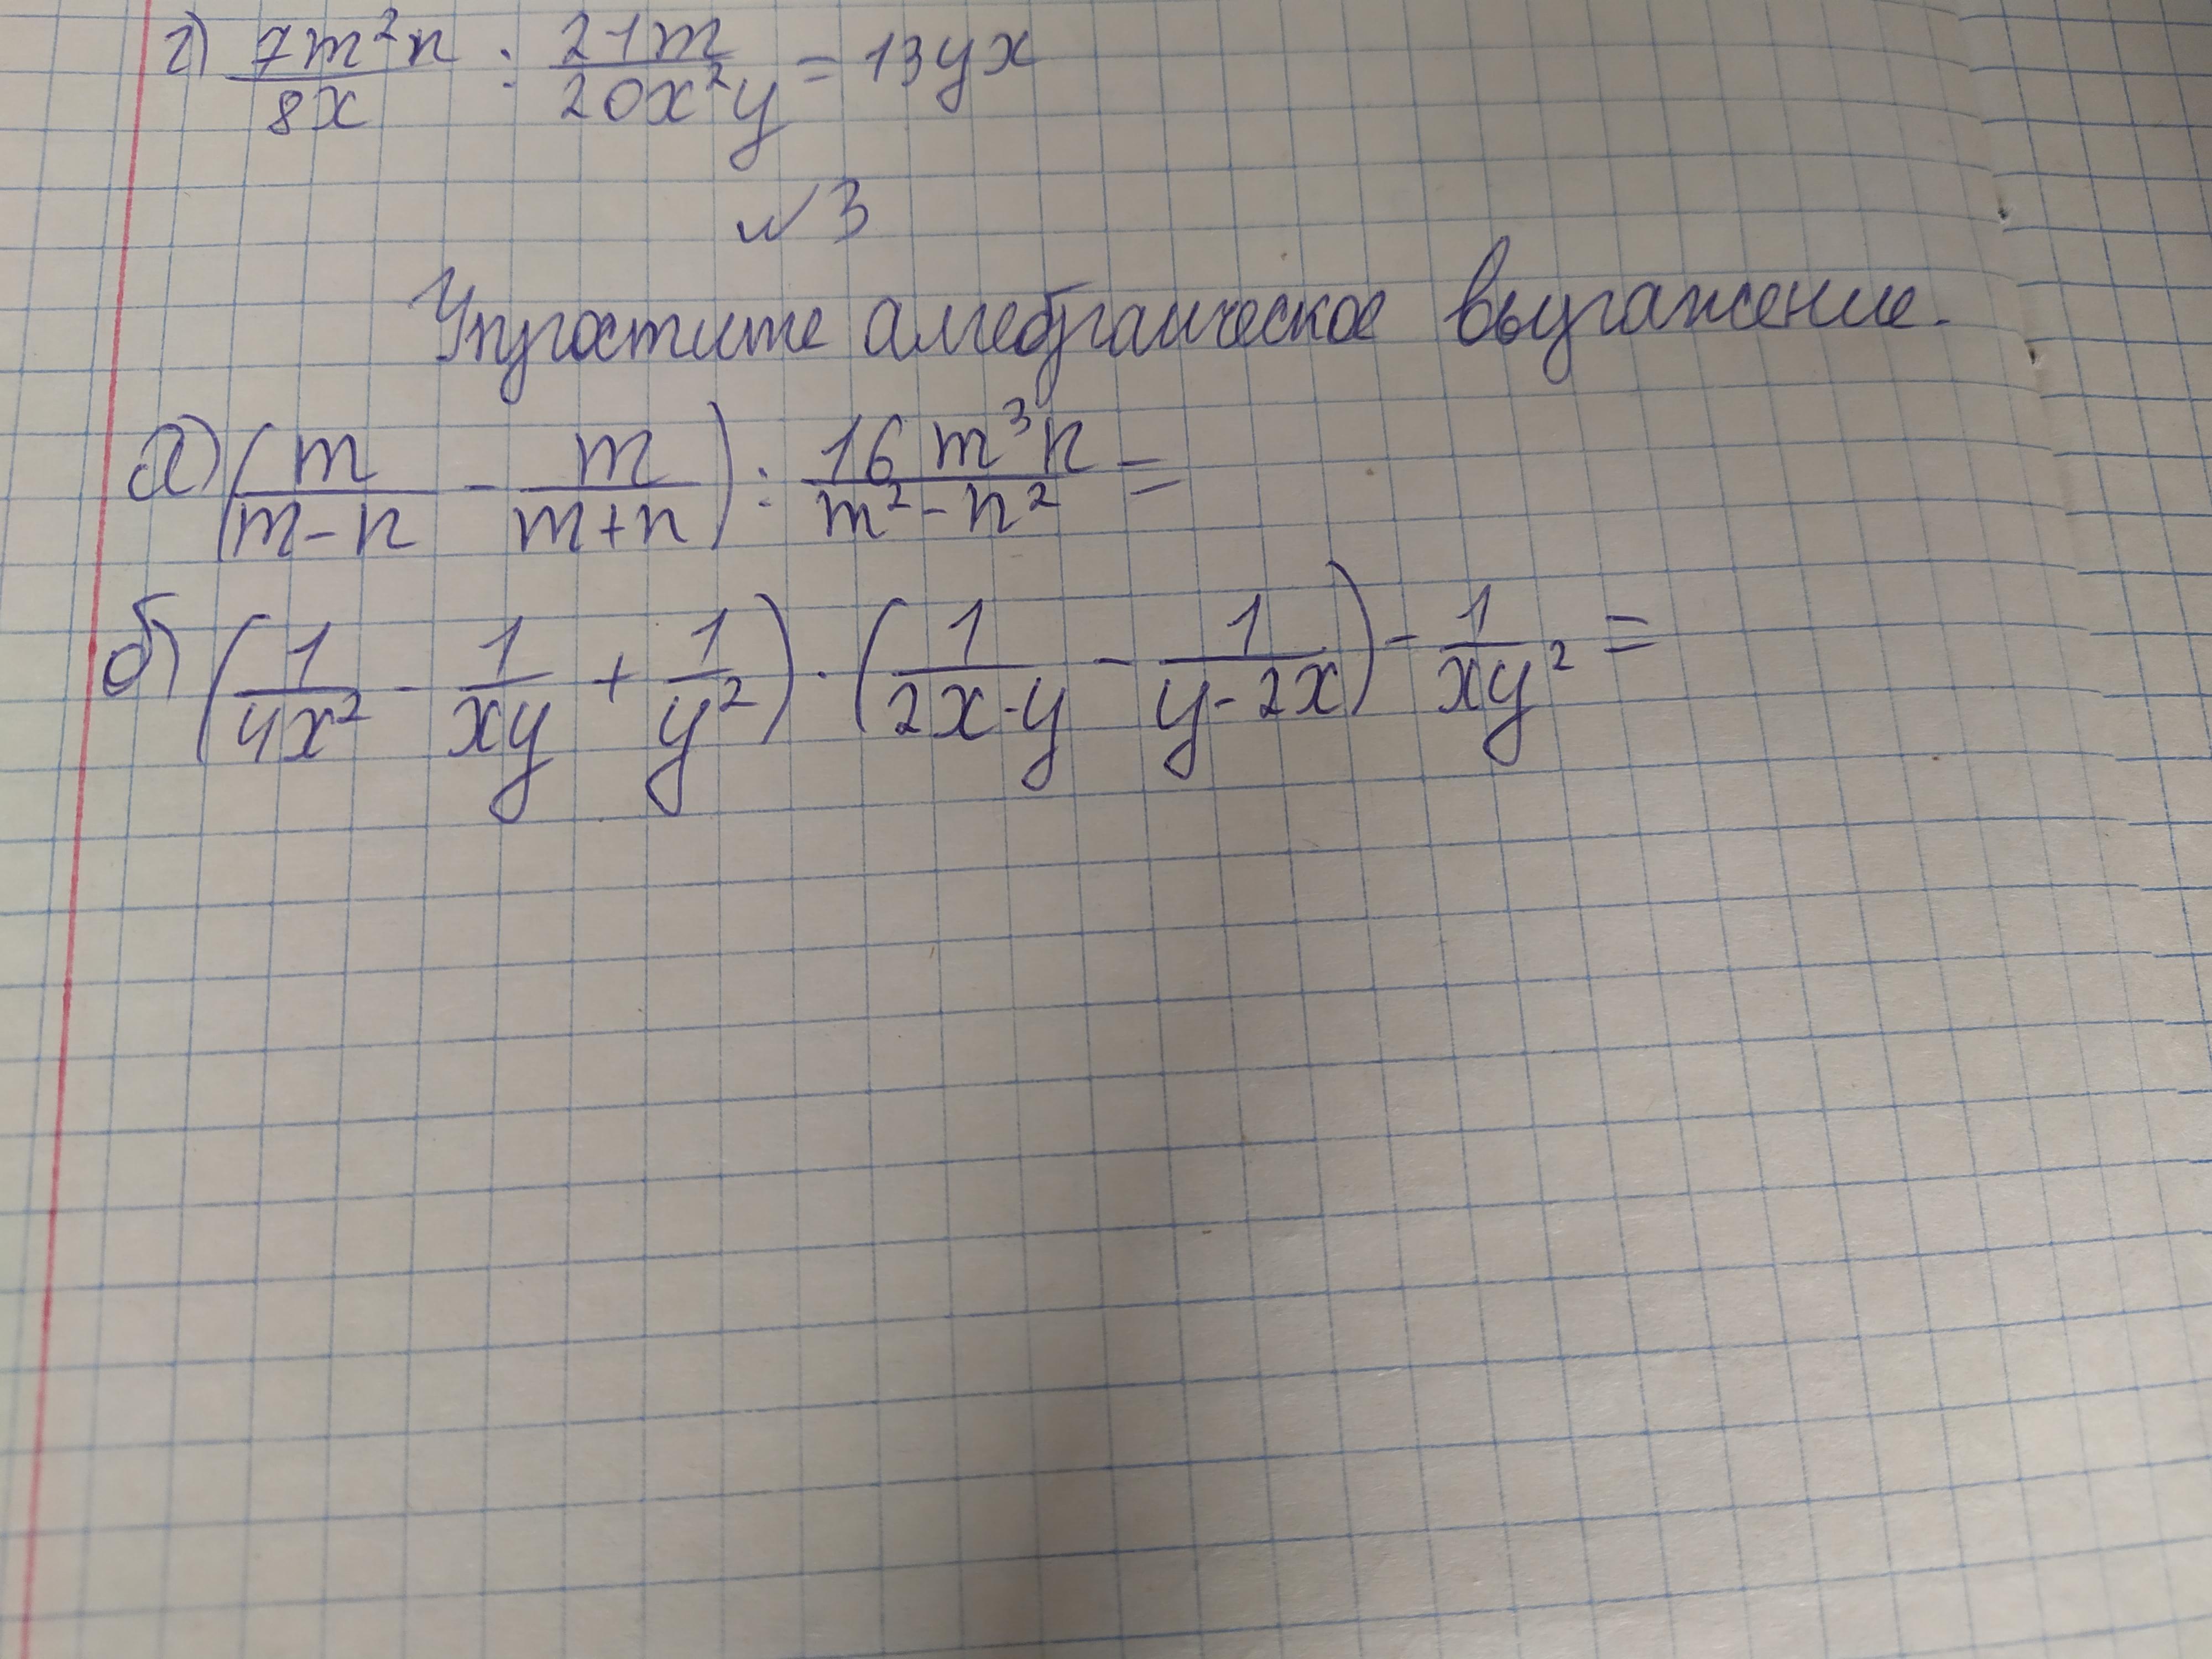 г) 7m²n/8x : 21m/20x²y = 13yx
№3
Упростите алгебраическое выражение.
а) (m/(m-n) - m/(m+n)) : 16m³n/(m²-n²) =
б) (1/4x² - 1/xy + 1/y²) · (1/(2x-y) - 1/(y-2x)) - 1/xy² =